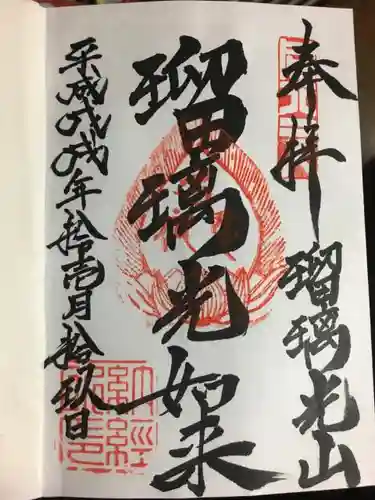 奉拝
瑠璃光山
瑠璃光如来
平成戊戌年拾壱月拾玖日
納経